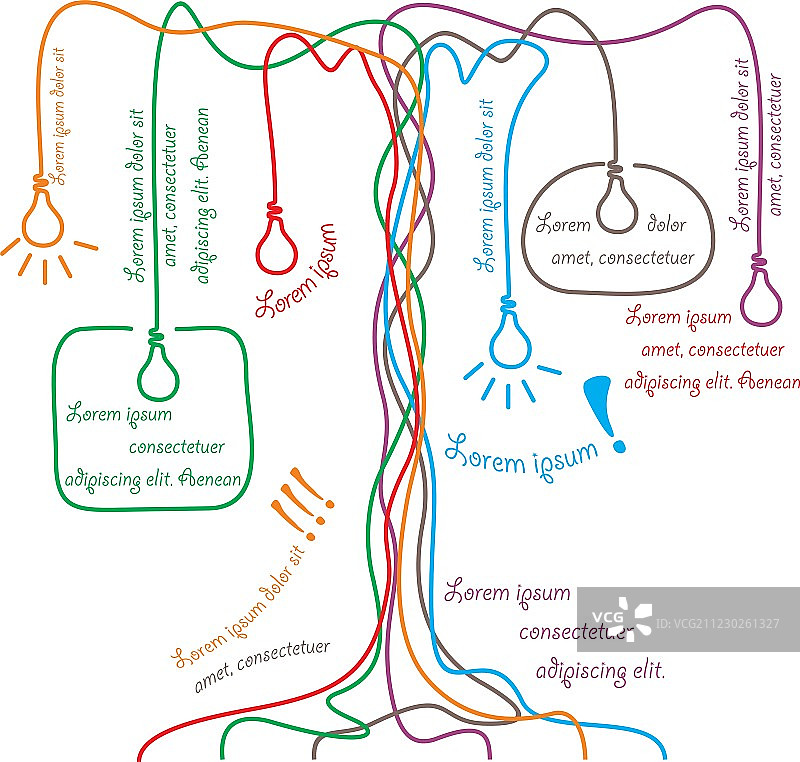 Lorem ipsum dolor sit
Lorem ipsum dolor sit
amet, consectetuer
adipiscing elit. Aenean
Lorem ipsum
Lorem ipsum dolor sit
Lorem dolor
amet, consectetuer
Lorem ipsum dolor sit
amet, consectetuer
Lorem ipsum
amet, consectetuer
adipiscing elit. Aenean
Lorem ipsum
consectetuer
adipiscing elit. Aenean
Lorem ipsum !
!!!
Lorem ipsum dolor sit
amet, consectetuer
Lorem ipsum
consectetuer
adipiscing elit.
VCG
ID: VCG211230261327